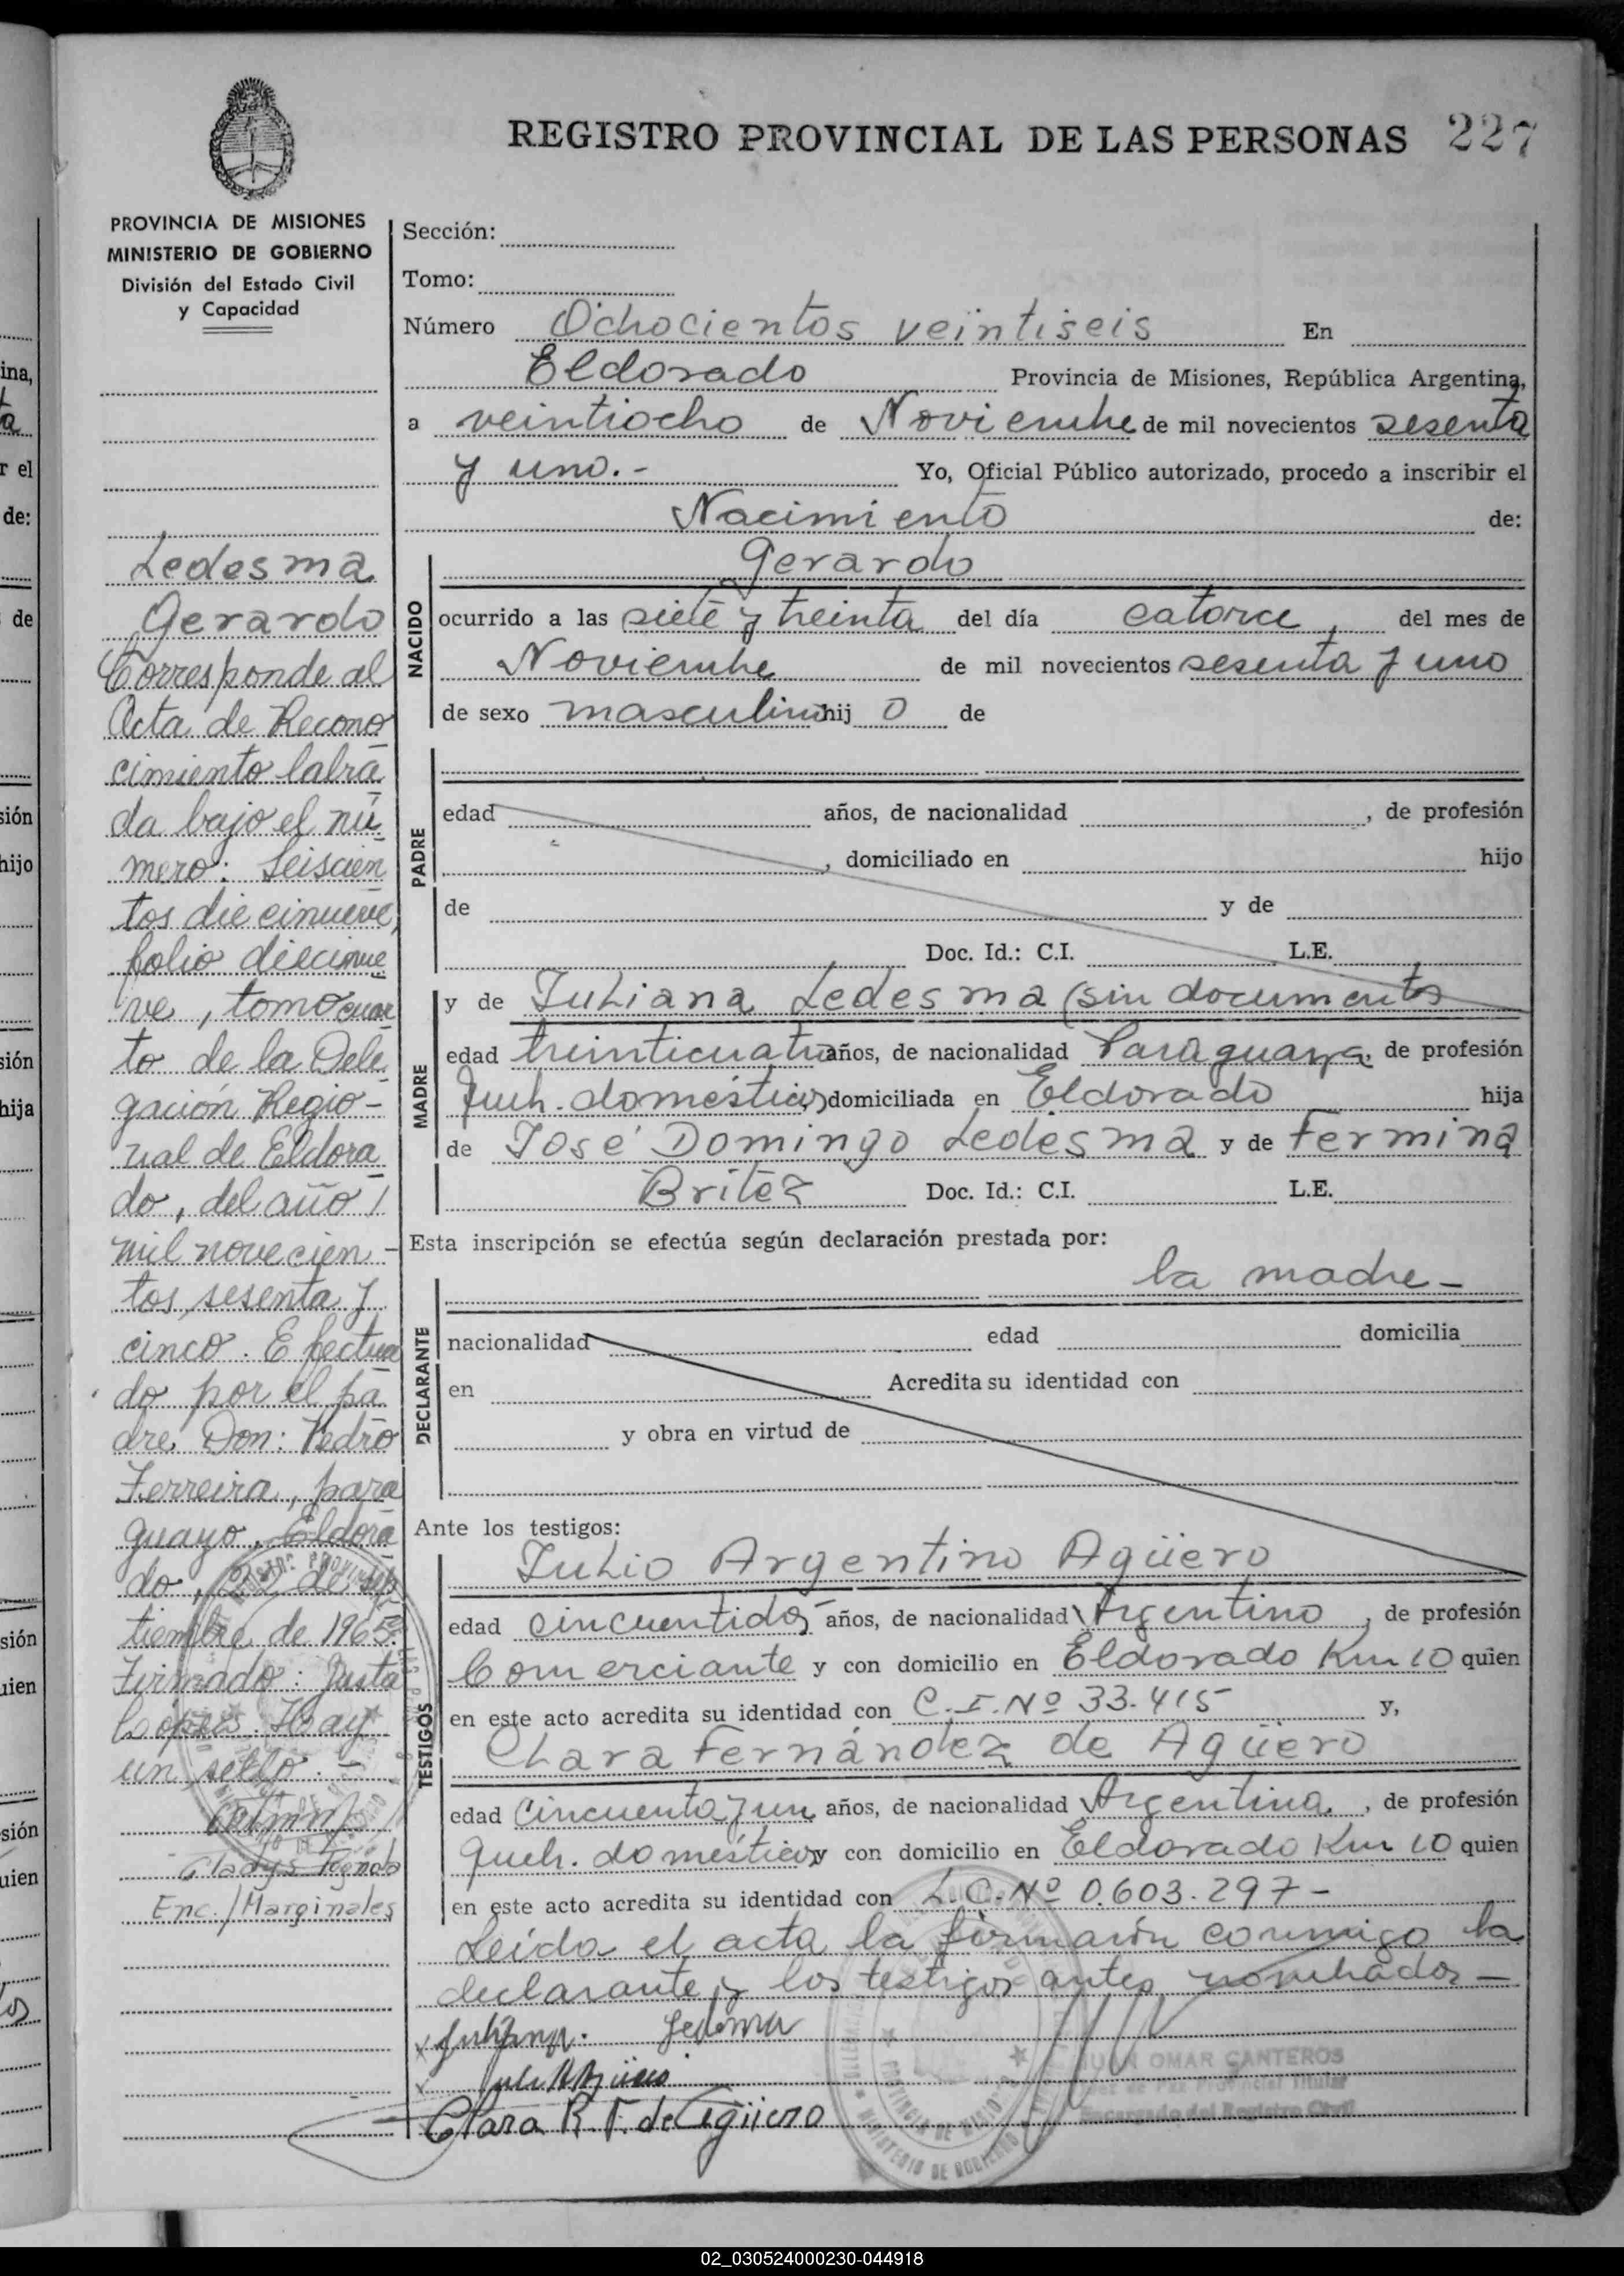 REGISTRO PROVINCIAL DE LAS PERSONAS 227
PROVINCIA DE MISIONES
MINISTERIO DE GOBIERNO
División del Estado Civil
y Capacidad
Ledesma
Gerardo
Corresponde al
Acta de Recono
cimiento labra
da bajo el nú
mero: Seiscien
tos diecinueve,
folio diecinue
ve, tomo cuar
to de la Dele
gación Regio-
nal de Eldora
do, del año /
mil novecien-
tos sesenta y
cinco. Efectua
do por el pa
dre Don: Pedro
Ferreira, para
guayo. Eldora
do, de sep
tiembre de 1965.
Firmado: Justa
López. Hay
un sello.-
Gladys
Enc./Marginales
Sección:
Tomo:
Número Ochocientos veintiseis En
Eldorado Provincia de Misiones, República Argentina,
a veintiocho de Noviembre de mil novecientos sesenta
y uno.- Yo, Oficial Público autorizado, procedo a inscribir el
Nacimiento de:
NACIDO
Gerardo
ocurrido a las siete y treinta del día catorce, del mes de
Noviembre de mil novecientos sesenta y uno
de sexo masculino hij o de
PADRE
edad años, de nacionalidad , de profesión
, domiciliado en hijo
de y de
Doc. Id.: C.I. L.E.
MADRE
y de Juliana Ledesma (sin documentos
edad treinticuatro años, de nacionalidad Paraguaya, de profesión
Queh. domésticos domiciliada en Eldorado hija
de José Domingo Ledesma y de Fermina
Britez Doc. Id.: C.I. L.E.
Esta inscripción se efectúa según declaración prestada por:
la madre-
DECLARANTE
nacionalidad edad domicilia
en Acredita su identidad con
y obra en virtud de
Ante los testigos:
TESTIGOS
Julio Argentino Agüero
edad cincuentidos años, de nacionalidad Argentino, de profesión
Comerciante y con domicilio en Eldorado Km 10 quien
en este acto acredita su identidad con C.I. Nº 33.415 y,
Clara Fernández de Agüero
edad cincuenta y un años, de nacionalidad Argentina, de profesión
queh. domésticos y con domicilio en Eldorado Km 10 quien
en este acto acredita su identidad con L.C. Nº 0.603.297-
Leída el acta la firmarón conmigo la
declarante y los testigos antes nombrados-
Juliana Ledesma
Clara R. F. de Agüero
JUAN OMAR CANTEROS
Juez de Paz Provincial Titular
Encargado del Registro Civil
02_030524000230-044918